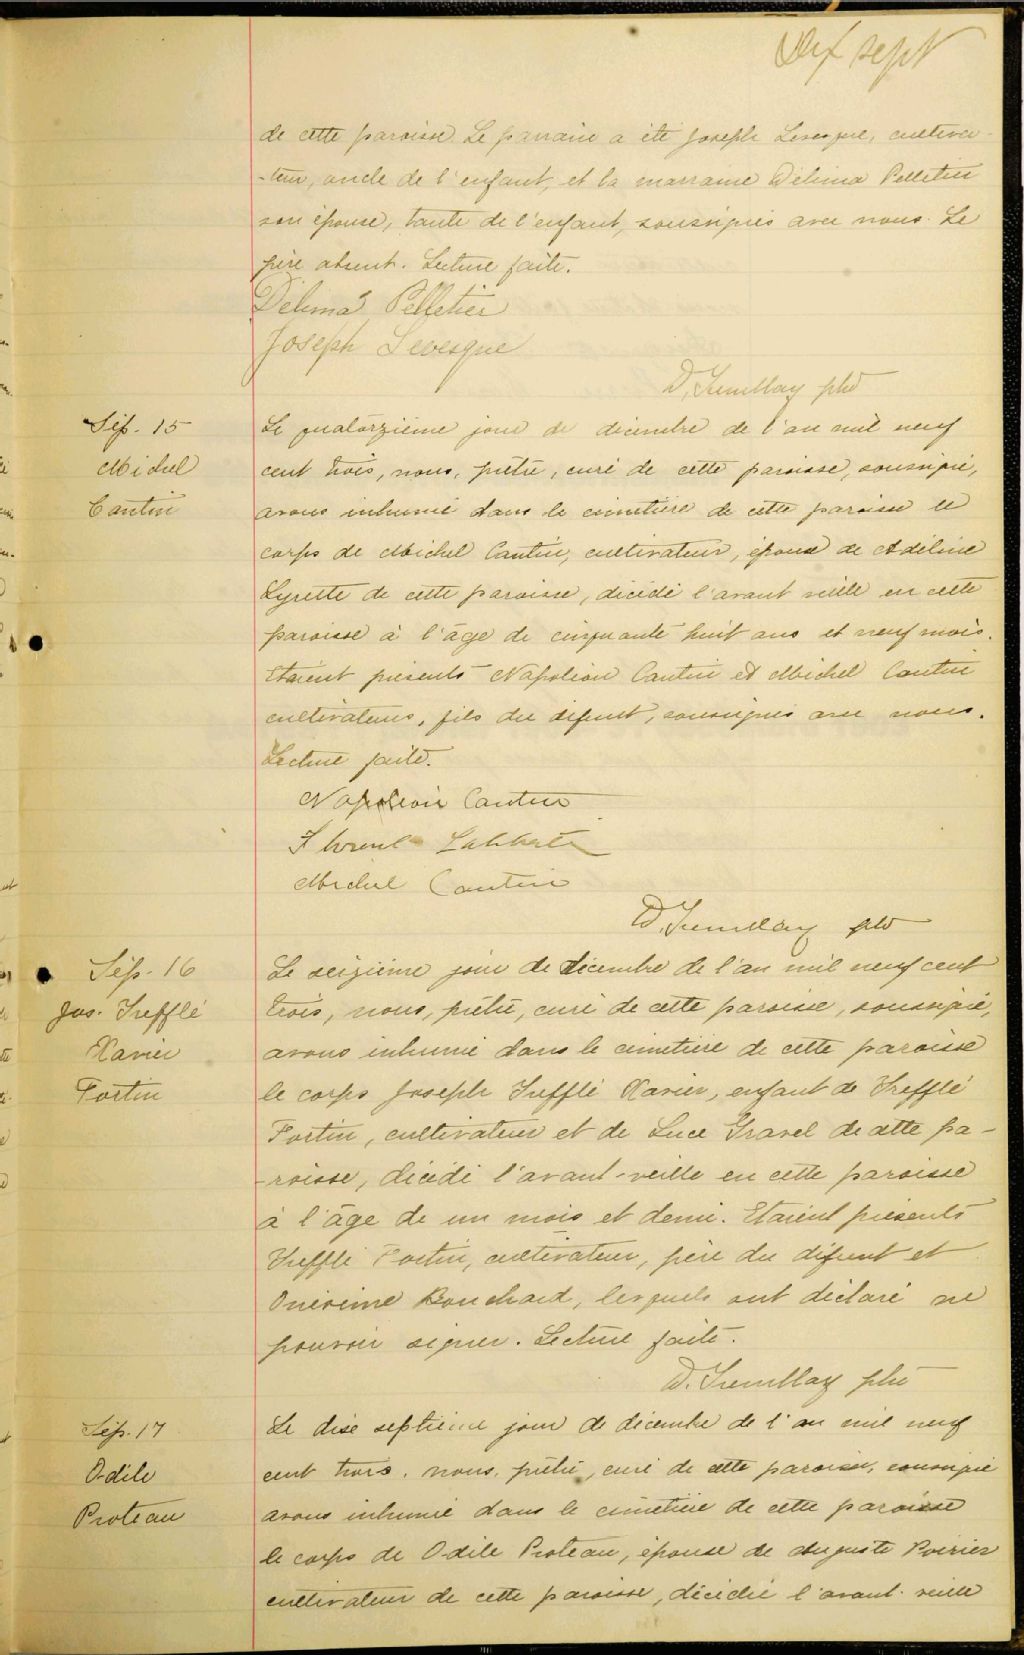 Dix sept
de cette paroisse. Le parrain a été Joseph Levesque, cultiva-
-teur, oncle de l'enfant, et la marraine Délima Pelletier
son épouse, tante de l'enfant, soussignés avec nous. Le
père absent. Lecture faite.
Délima Pelletier
Joseph Levesque
D. Tremblay ptre
Sép. 15
Michel
Cantin
Le quatorzième jour de décembre de l'an mil neuf
cent trois, nous, prêtre, curé de cette paroisse, soussigné,
avons inhumé dans le cimetière de cette paroisse le
corps de Michel Cantin, cultivateur, époux de Adéline
Lyrette de cette paroisse, décédé l'avant veille en cette
paroisse à l'âge de cinquante huit ans et neuf mois.
Etaient présents Napoléon Cantin et Michel Cantin
cultivateurs, fils du défunt, soussignés avec nous.
Lecture faite.
Napoléon Cantin
Laliberté
Michel Cantin
D. Tremblay ptre
Sép. 16
Jos. Trefflé
Xavier
Fortin
Le seizième jour de décembre de l'an mil neuf cent
trois, nous, prêtre, curé de cette paroisse, soussigné,
avons inhumé dans le cimetière de cette paroisse
le corps Joseph Trefflé Xavier, enfant de Trefflé
Fortin, cultivateur et de Luce Gravel de cette pa-
-roisse, décédé l'avant-veille en cette paroisse
à l'âge de un mois et demi. Etaient présents
Trefflé Fortin, cultivateur, père du défunt et
Onésime Bouchard, lesquels ont déclaré ne
pouvoir signer. Lecture faite.
D. Tremblay ptre
Sép. 17
Odile
Proteau
Le dix septième jour de décembre de l'an mil neuf
cent trois, nous, prêtre, curé de cette paroisse, soussigné
avons inhumé dans le cimetière de cette paroisse
le corps de Odile Proteau, épouse de Auguste Poirier
cultivateur de cette paroisse, décédée l'avant-veille